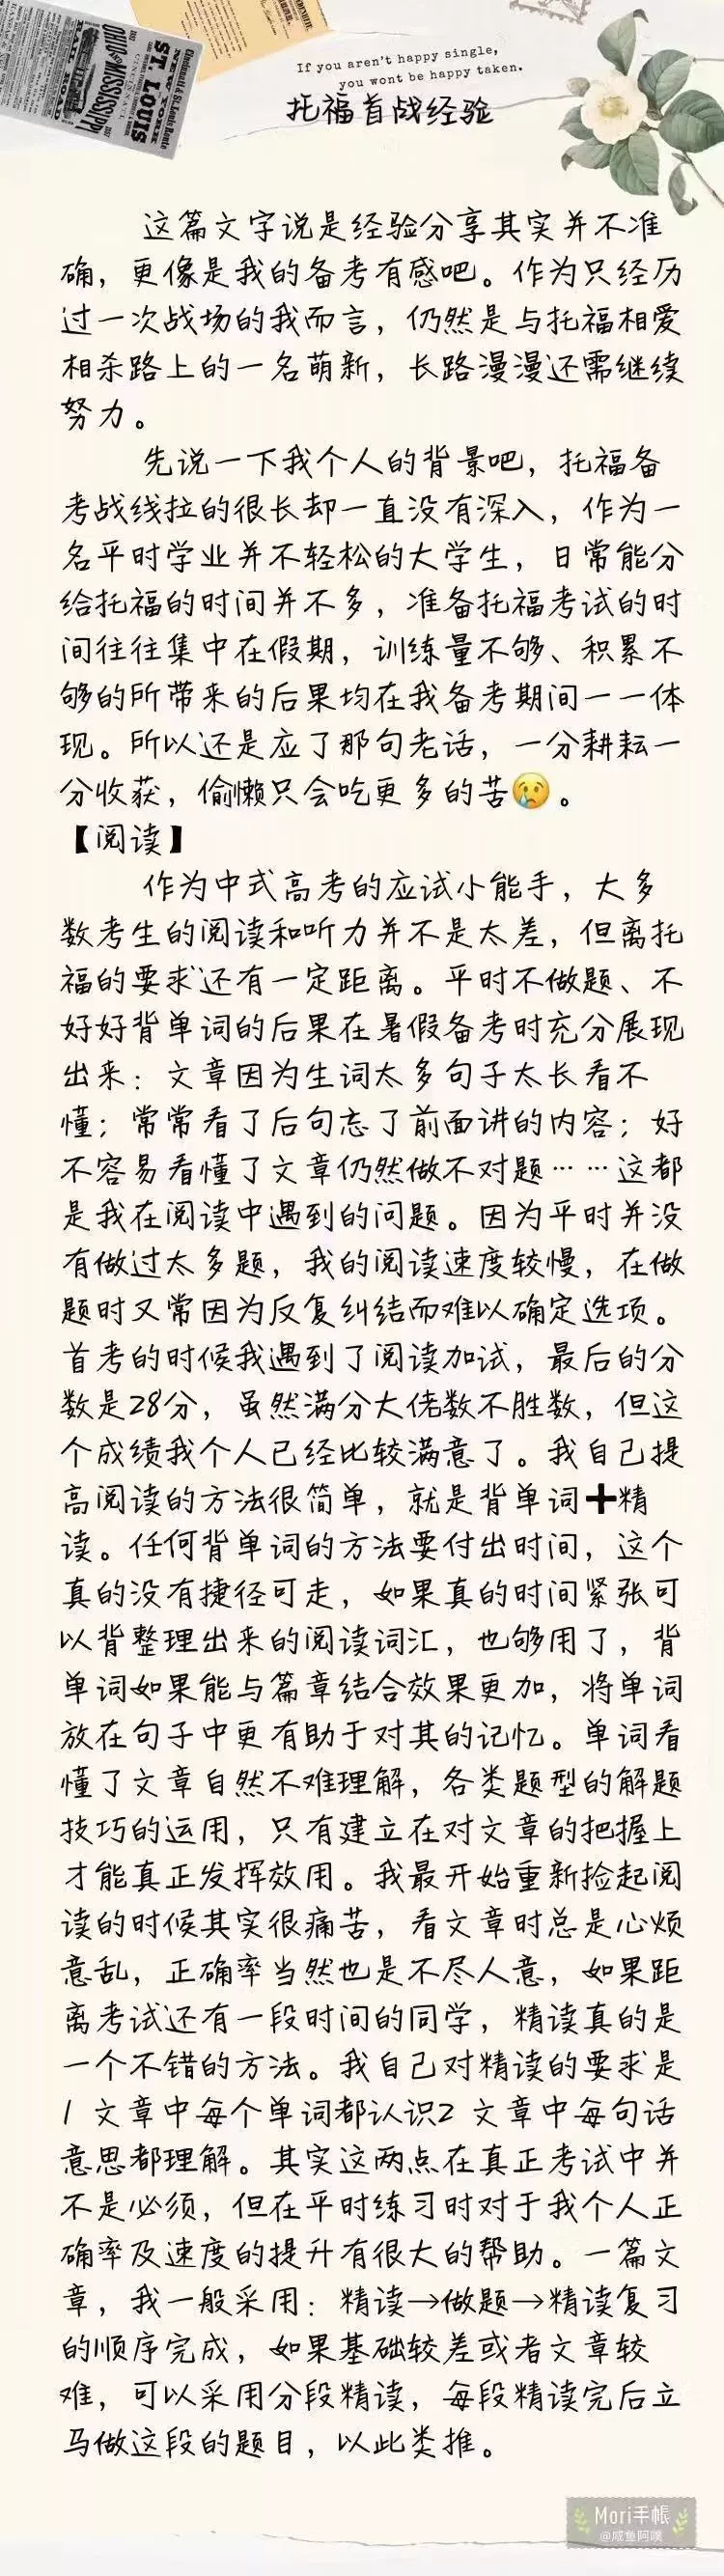 NEW YORK
ST. LOUIS
OHIO & MISSISSIPPI
RAIL ROAD
If you aren't happy single,
you wont be happy taken.
托福首战经验
这篇文字说是经验分享其实并不准
确，更像是我的备考有感吧。作为只经历
过一次战场的我而言，仍然是与托福相爱
相杀路上的一名萌新，长路漫漫还需继续
努力。
先说一下我个人的背景吧，托福备
考战线拉的很长却一直没有深入，作为一
名平时学业并不轻松的大学生，日常能分
给托福的时间并不多，准备托福考试的时
间往往集中在假期，训练量不够、积累不
够的所带来的后果均在我备考期间一一体
现。所以还是应了那句老话，一分耕耘一
分收获，偷懒只会吃更多的苦😢。
【阅读】
作为中式高考的应试小能手，大多
数考生的阅读和听力并不是太差，但离托
福的要求还有一定距离。平时不做题、不
好好背单词的后果在暑假备考时充分展现
出来：文章因为生词太多句子太长看不
懂；常常看了后句忘了前面讲的内容；好
不容易看懂了文章仍然做不对题……这都
是我在阅读中遇到的问题。因为平时并没
有做过太多题，我的阅读速度较慢，在做
题时又常因为反复纠结而难以确定选项。
首考的时候我遇到了阅读加试，最后的分
数是28分，虽然满分大佬数不胜数，但这
个成绩我个人已经比较满意了。我自己提
高阅读的方法很简单，就是背单词➕精
读。任何背单词的方法要付出时间，这个
真的没有捷径可走，如果真的时间紧张可
以背整理出来的阅读词汇，也够用了，背
单词如果能与篇章结合效果更加，将单词
放在句子中更有助于对其的记忆。单词看
懂了文章自然不难理解，各类题型的解题
技巧的运用，只有建立在对文章的把握上
才能真正发挥效用。我最开始重新捡起阅
读的时候其实很痛苦，看文章时总是心烦
意乱，正确率当然也是不尽人意，如果距
离考试还有一段时间的同学，精读真的是
一个不错的方法。我自己对精读的要求是
1 文章中每个单词都认识2 文章中每句话
意思都理解。其实这两点在真正考试中并
不是必须，但在平时练习时对于我个人正
确率及速度的提升有很大的帮助。一篇文
章，我一般采用：精读→做题→精读复习
的顺序完成，如果基础较差或者文章较
难，可以采用分段精读，每段精读完后立
马做这段的题目，以此类推。
Mori手帐
@咸鱼阿噗